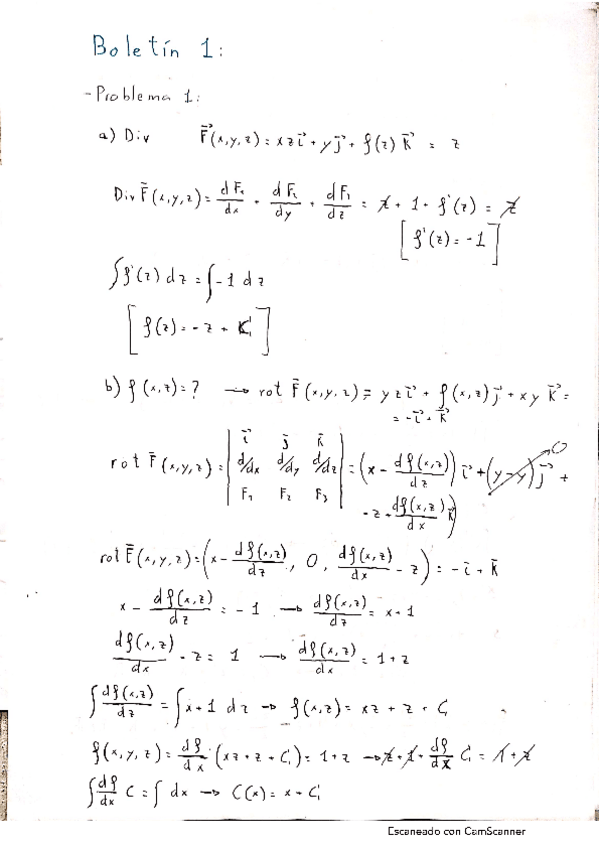 Boletín 1:
- Problema 1:
a) Div F⃗(x,y,z) = xz i⃗ + y j⃗ + f(z) k⃗ = z
Div F⃗(x,y,z) = dF₁/dx + dF₂/dy + dF₃/dz = z + 1 + f'(z) = z
[f'(z) = -1]
∫f'(z) dz = ∫-1 dz
[f(z) = -z + C]
b) f(x,z) = ? → rot F⃗(x,y,z) = yz i⃗ + f(x,z) j⃗ + xy k⃗ =
= -i⃗ + k⃗
rot F⃗(x,y,z) = | i⃗ j⃗ k⃗ ; d/dx d/dy d/dz ; F₁ F₂ F₃ | = (x - df(x,z)/dz) i⃗ + (y-y) j⃗ → 0 +
-z + df(x,z)/dx k⃗)
rot F⃗(x,y,z) = (x - df(x,z)/dz, 0, df(x,z)/dx - z) = -i⃗ + k⃗
x - df(x,z)/dz = -1 → df(x,z)/dz = x+1
df(x,z)/dx - z = 1 → df(x,z)/dx = 1+z
∫df(x,z)/dz = ∫x+1 dz → f(x,z) = xz + z + C
f(x,y,z) = df/dx (xz + z + C) = 1+z → z + 1 + df/dx C = 1+z
∫df/dx C = ∫dx → C(x) = x + C
Escaneado con CamScanner